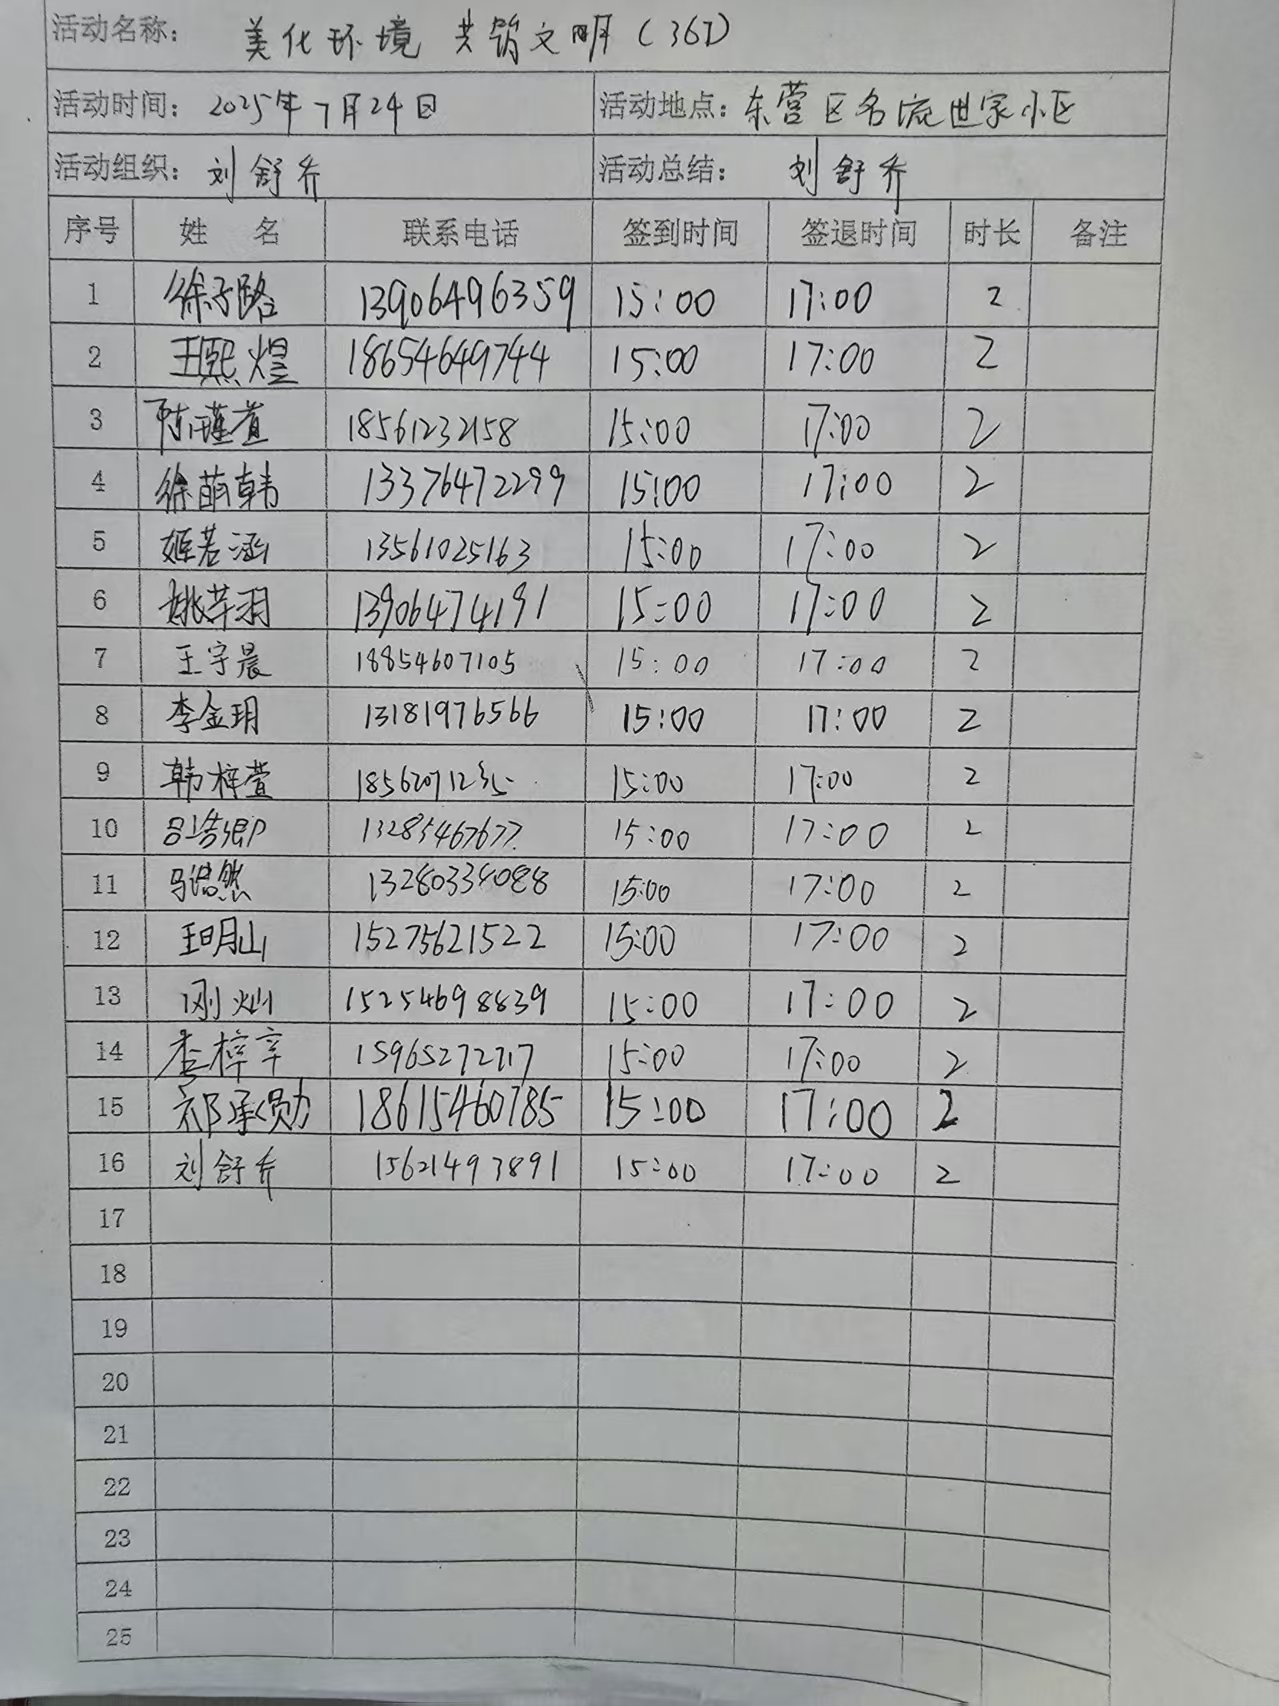 活动名称： 美化环境 共筑文明（367）
活动时间： 2025年7月24日 活动地点： 东营区名流世家小区
活动组织： 刘舒乔 活动总结： 刘舒乔
序号 姓 名 联系电话 签到时间 签退时间 时长 备注
1 徐子路 13906496359 15:00 17:00 2
2 王熙煜 18654649744 15:00 17:00 2
3 陈瑾萱 18561232158 15:00 17:00 2
4 徐萌韩 13376472299 15:00 17:00 2
5 姬若涵 13561025163 15:00 17:00 2
6 姚芊羽 13906474191 15:00 17:00 2
7 王宇晨 18854607105 15:00 17:00 2
8 李金玥 13181976566 15:00 17:00 2
9 韩梓萱 15:00 17:00 2
10 13285467677 15:00 17:00 2
11 马浩然 13280334088 15:00 17:00 2
12 王明山 15275621522 15:00 17:00 2
13 刚灿 15254698839 15:00 17:00 2
14 李梓辛 15965272717 15:00 17:00 2
15 祁承勋 18615460785 15:00 17:00 2
16 刘舒乔 15621493891 15:00 17:00 2
17
18
19
20
21
22
23
24
25